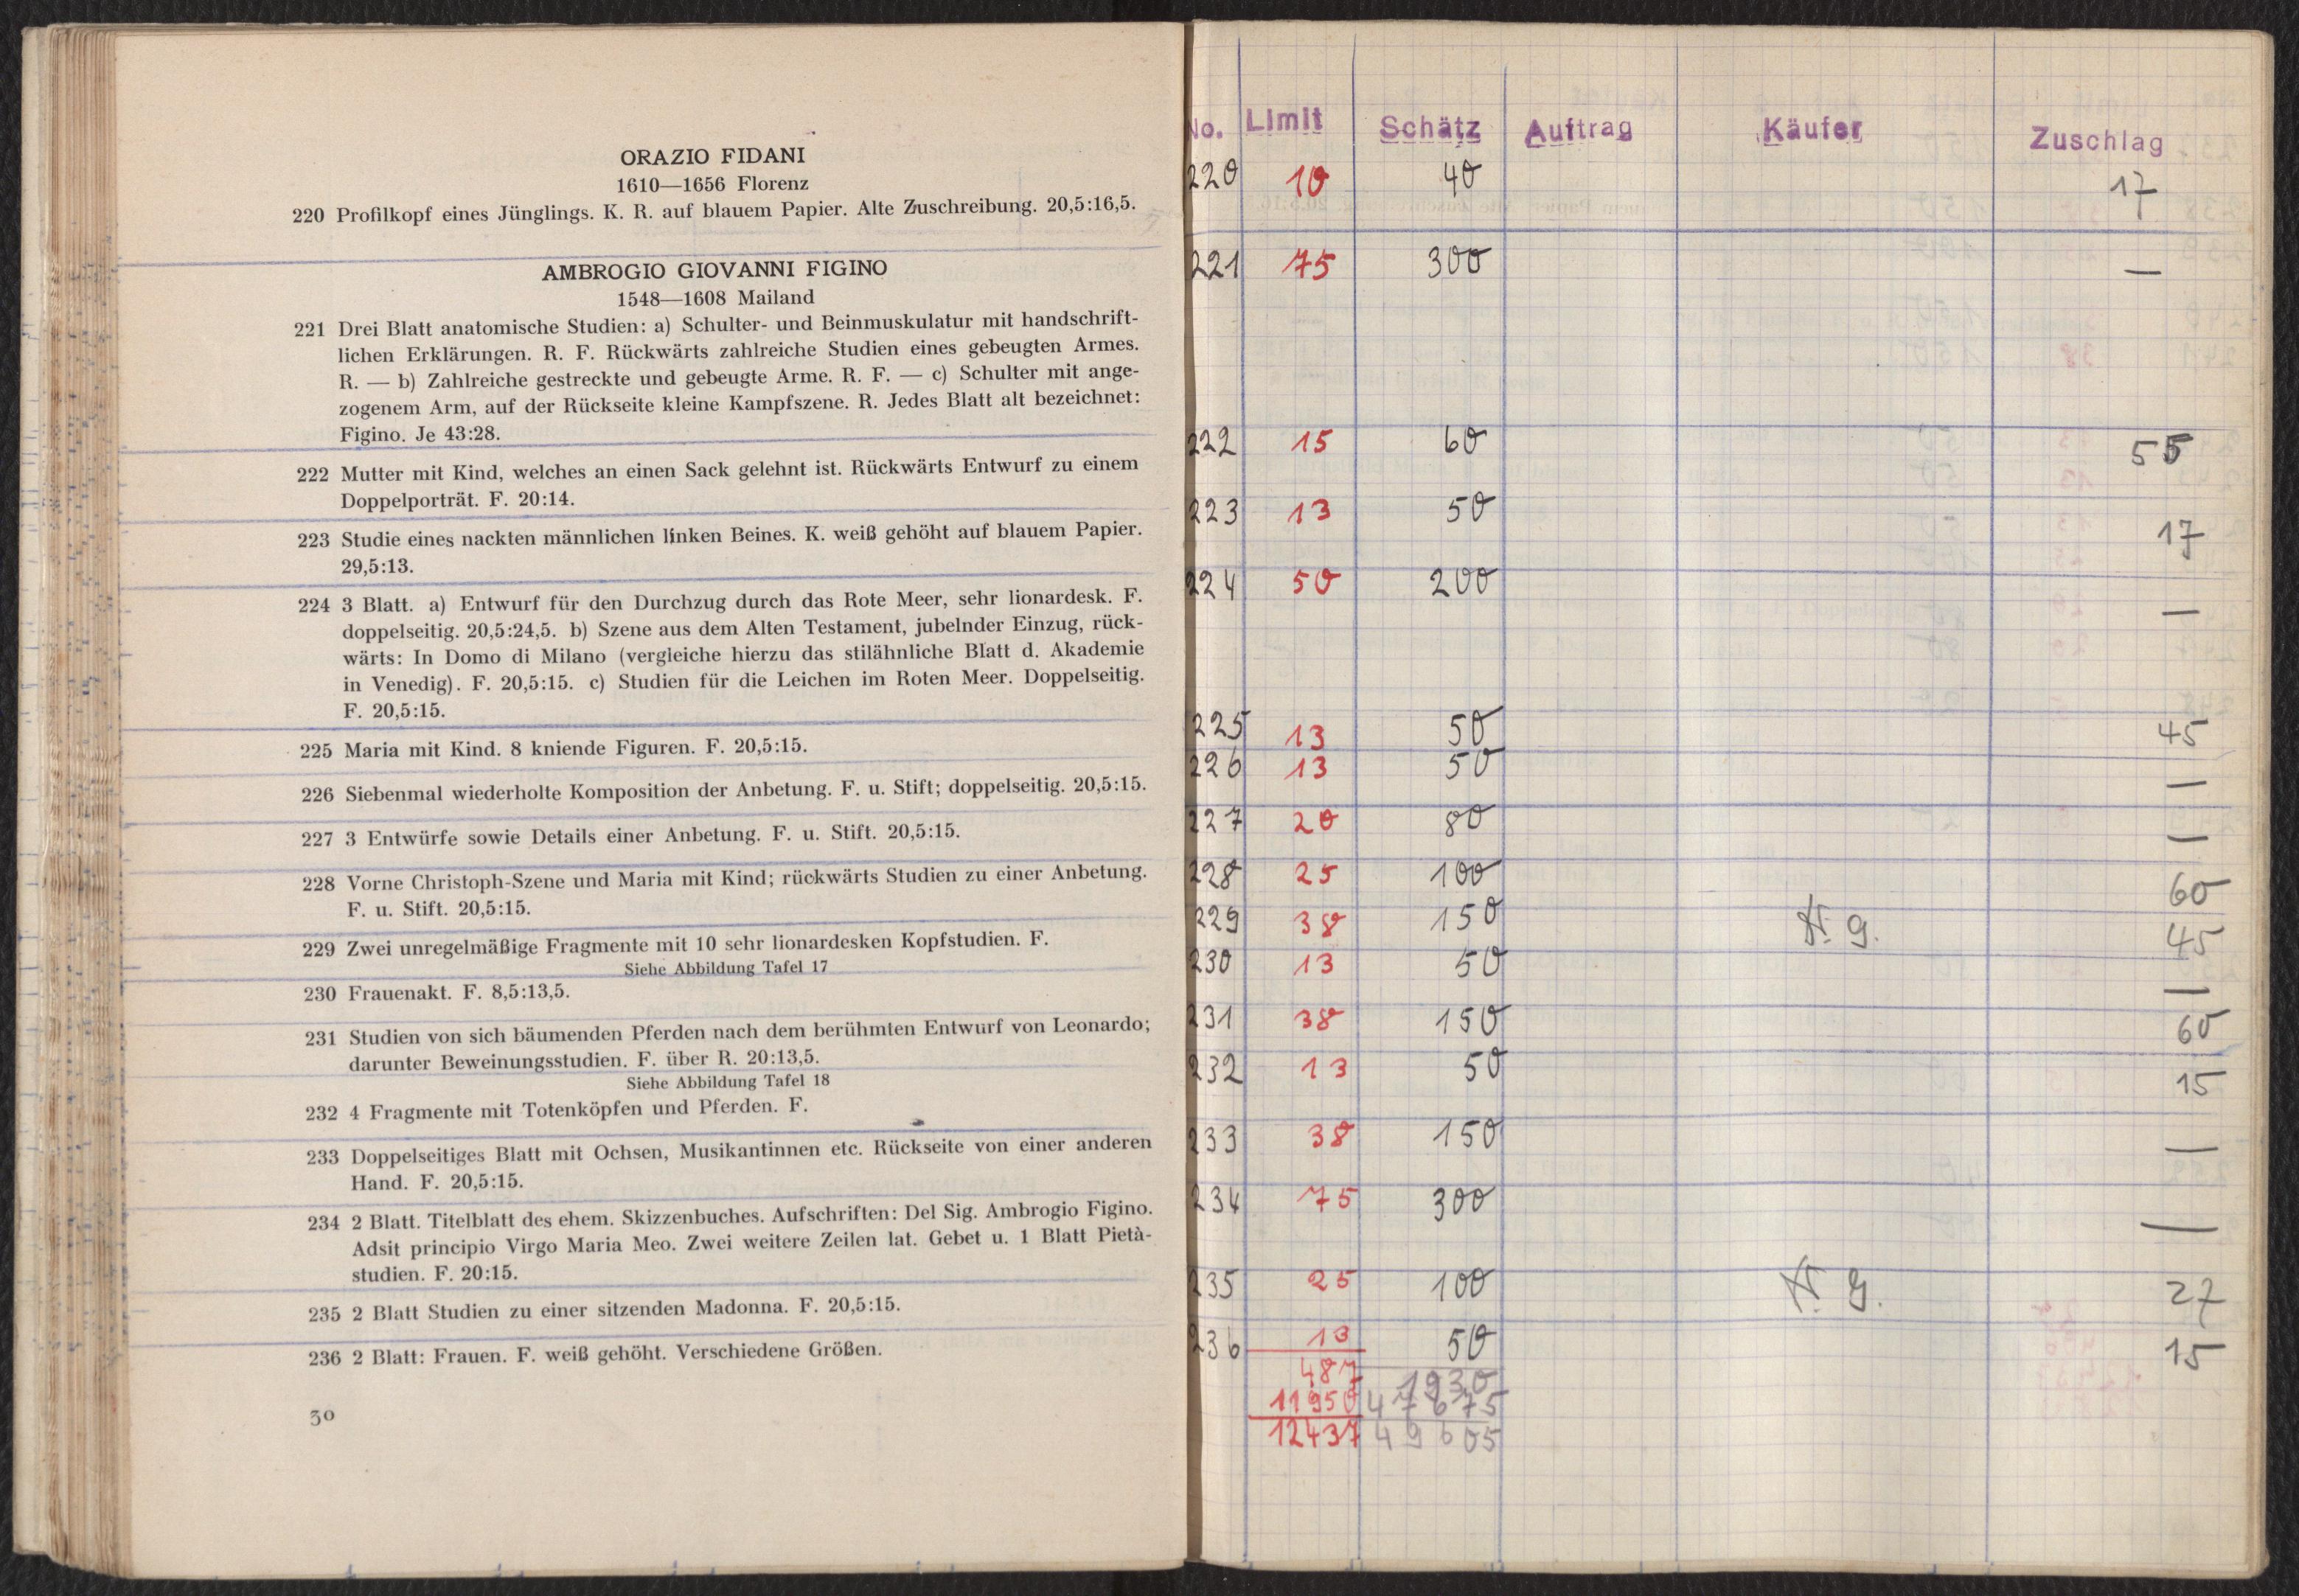 ORAZIO FIDANI
1610—1656 Florenz
220 Profilkopf eines Jünglings. K. R. auf blauem Papier. Alte Zuschreibung. 20,5:16,5.
AMBROGIO GIOVANNI FIGINO
1548—1608 Mailand
221 Drei Blatt anatomische Studien: a) Schulter- und Beinmuskulatur mit handschrift-
lichen Erklärungen. R. F. Rückwärts zahlreiche Studien eines gebeugten Armes.
R. — b) Zahlreiche gestreckte und gebeugte Arme. R. F. — c) Schulter mit ange-
zogenem Arm, auf der Rückseite kleine Kampfszene. R. Jedes Blatt alt bezeichnet:
Figino. Je 43:28.
222 Mutter mit Kind, welches an einen Sack gelehnt ist. Rückwärts Entwurf zu einem
Doppelporträt. F. 20:14.
223 Studie eines nackten männlichen linken Beines. K. weiß gehöht auf blauem Papier.
29,5:13.
224 3 Blatt. a) Entwurf für den Durchzug durch das Rote Meer, sehr lionardesk. F.
doppelseitig. 20,5:24,5. b) Szene aus dem Alten Testament, jubelnder Einzug, rück-
wärts: In Domo di Milano (vergleiche hierzu das stilähnliche Blatt d. Akademie
in Venedig). F. 20,5:15. c) Studien für die Leichen im Roten Meer. Doppelseitig.
F. 20,5:15.
225 Maria mit Kind. 8 kniende Figuren. F. 20,5:15.
226 Siebenmal wiederholte Komposition der Anbetung. F. u. Stift; doppelseitig. 20,5:15.
227 3 Entwürfe sowie Details einer Anbetung. F. u. Stift. 20,5:15.
228 Vorne Christoph-Szene und Maria mit Kind; rückwärts Studien zu einer Anbetung.
F. u. Stift. 20,5:15.
229 Zwei unregelmäßige Fragmente mit 10 sehr lionardesken Kopfstudien. F.
Siehe Abbildung Tafel 17
230 Frauenakt. F. 8,5:13,5.
231 Studien von sich bäumenden Pferden nach dem berühmten Entwurf von Leonardo;
darunter Beweinungsstudien. F. über R. 20:13,5.
Siehe Abbildung Tafel 18
232 4 Fragmente mit Totenköpfen und Pferden. F.
233 Doppelseitiges Blatt mit Ochsen, Musikantinnen etc. Rückseite von einer anderen
Hand. F. 20,5:15.
234 2 Blatt. Titelblatt des ehem. Skizzenbuches. Aufschriften: Del Sig. Ambrogio Figino.
Adsit principio Virgo Maria Meo. Zwei weitere Zeilen lat. Gebet u. 1 Blatt Pietà-
studien. F. 20:15.
235 2 Blatt Studien zu einer sitzenden Madonna. F. 20,5:15.
236 2 Blatt: Frauen. F. weiß gehöht. Verschiedene Größen.
30
No. Limit Schätz Auftrag Käufer Zuschlag
220 10 40 17
221 75 300 —
222 15 60 55
223 13 50 17
224 50 200 —
225 13 50 45
226 13 50 —
227 20 80 —
228 25 100 60
229 38 150 H. G. 45
230 13 50 —
231 38 150 60
232 13 50 15
233 38 150 —
234 75 300 —
235 25 100 H. G. 27
236 13 50 15
487 1930
11950 47675
12437 49605